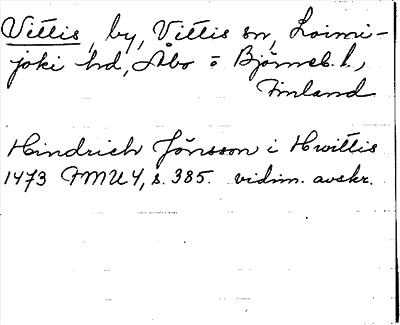 Vittis, by, Vittis sn, Loimi-
joki hd, Åbo o Björneb. l.,
Finland
Hindrich Jönsson i Hwittis
1473 FMU 4, s. 385. vidim. avskr.